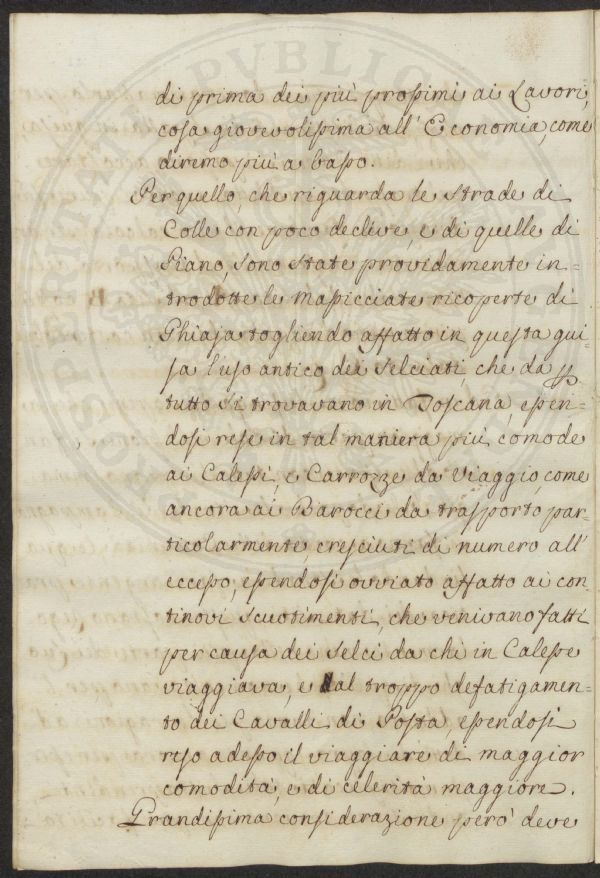 di prima dei più prossimi ai Lavori,
cosa giovevolissima all' Economia, come
diremo più a basso.
Per quello, che riguarda le strade di
Colle con poco declive, e di quelle di
Piano, sono state providamente in=
trodotte le Massicciate ricoperte di
Ghiaja togliendo affatto in questa gui=
sa l'uso antico dei Selciati, che da p
tutto si trovavano in Toscana, essen=
dosi rese in tal maniera più comode
ai Calessi, e Carrozze da Viaggio, come
ancora ai Barocci da trasporto, par=
ticolarmente cresciuti di numero all'
eccesso, essendosi ovviato affatto ai con=
tinovi scuotimenti, che venivano fatti
per causa dei Selci da chi in Calesse
viaggiava, e dal troppo defatigamen=
to dei Cavalli di Posta, essendosi
reso adesso il viaggiare di maggior
comodità, e di celerità maggiore.
Grandissima considerazione però deve